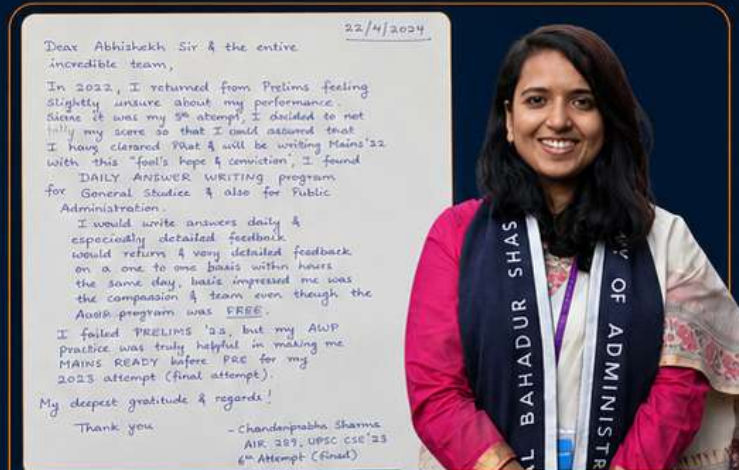 22/4/2024
Dear Abhishekh Sir & the entire
incredible team,
In 2022, I returned from Prelims feeling
slightly unsure about my performance.
Sicne it was my 5th atempt, I dscided to not
tally my score so that I could assured that
I have clerared & will be writing Mains'22
with this "fool's hope & conviction', I found
DAILY ANSWER WRITING program
for General Studies & also for Public
Administration.
I would write answers daily &
especiadly detailed feedback
would return & very detailed feedback
on a one to one basis withn hours
the same day, basis impressed me was
the compassion & team even though the
program was FREE.
I failed PRELIMS '22, but my AWP
practice was truly helpful in making me
MAINS READY before PRE for my
2023 attempt (final attempt).
My deepest gratitude & regards!
Thank you
- Chandanprabha Sharma
AIR 289, UPSC CSE'23
6th Attempt (final)
AL BAHADUR SHAS
Y OF ADMINISTR